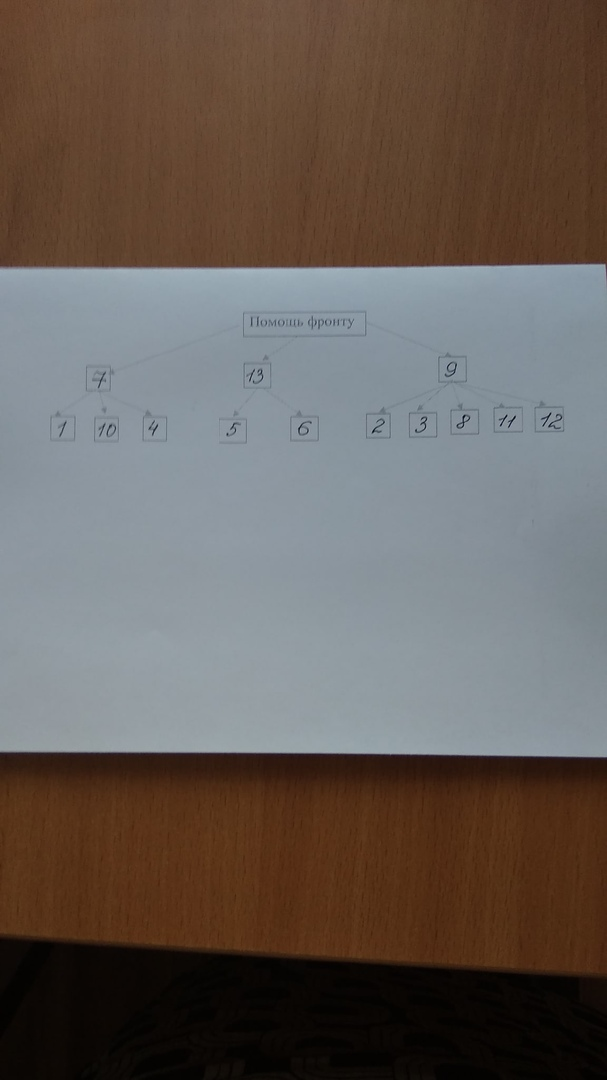 Помощь фронту
7 13 9
1 10 4 5 6 2 3 8 11 12